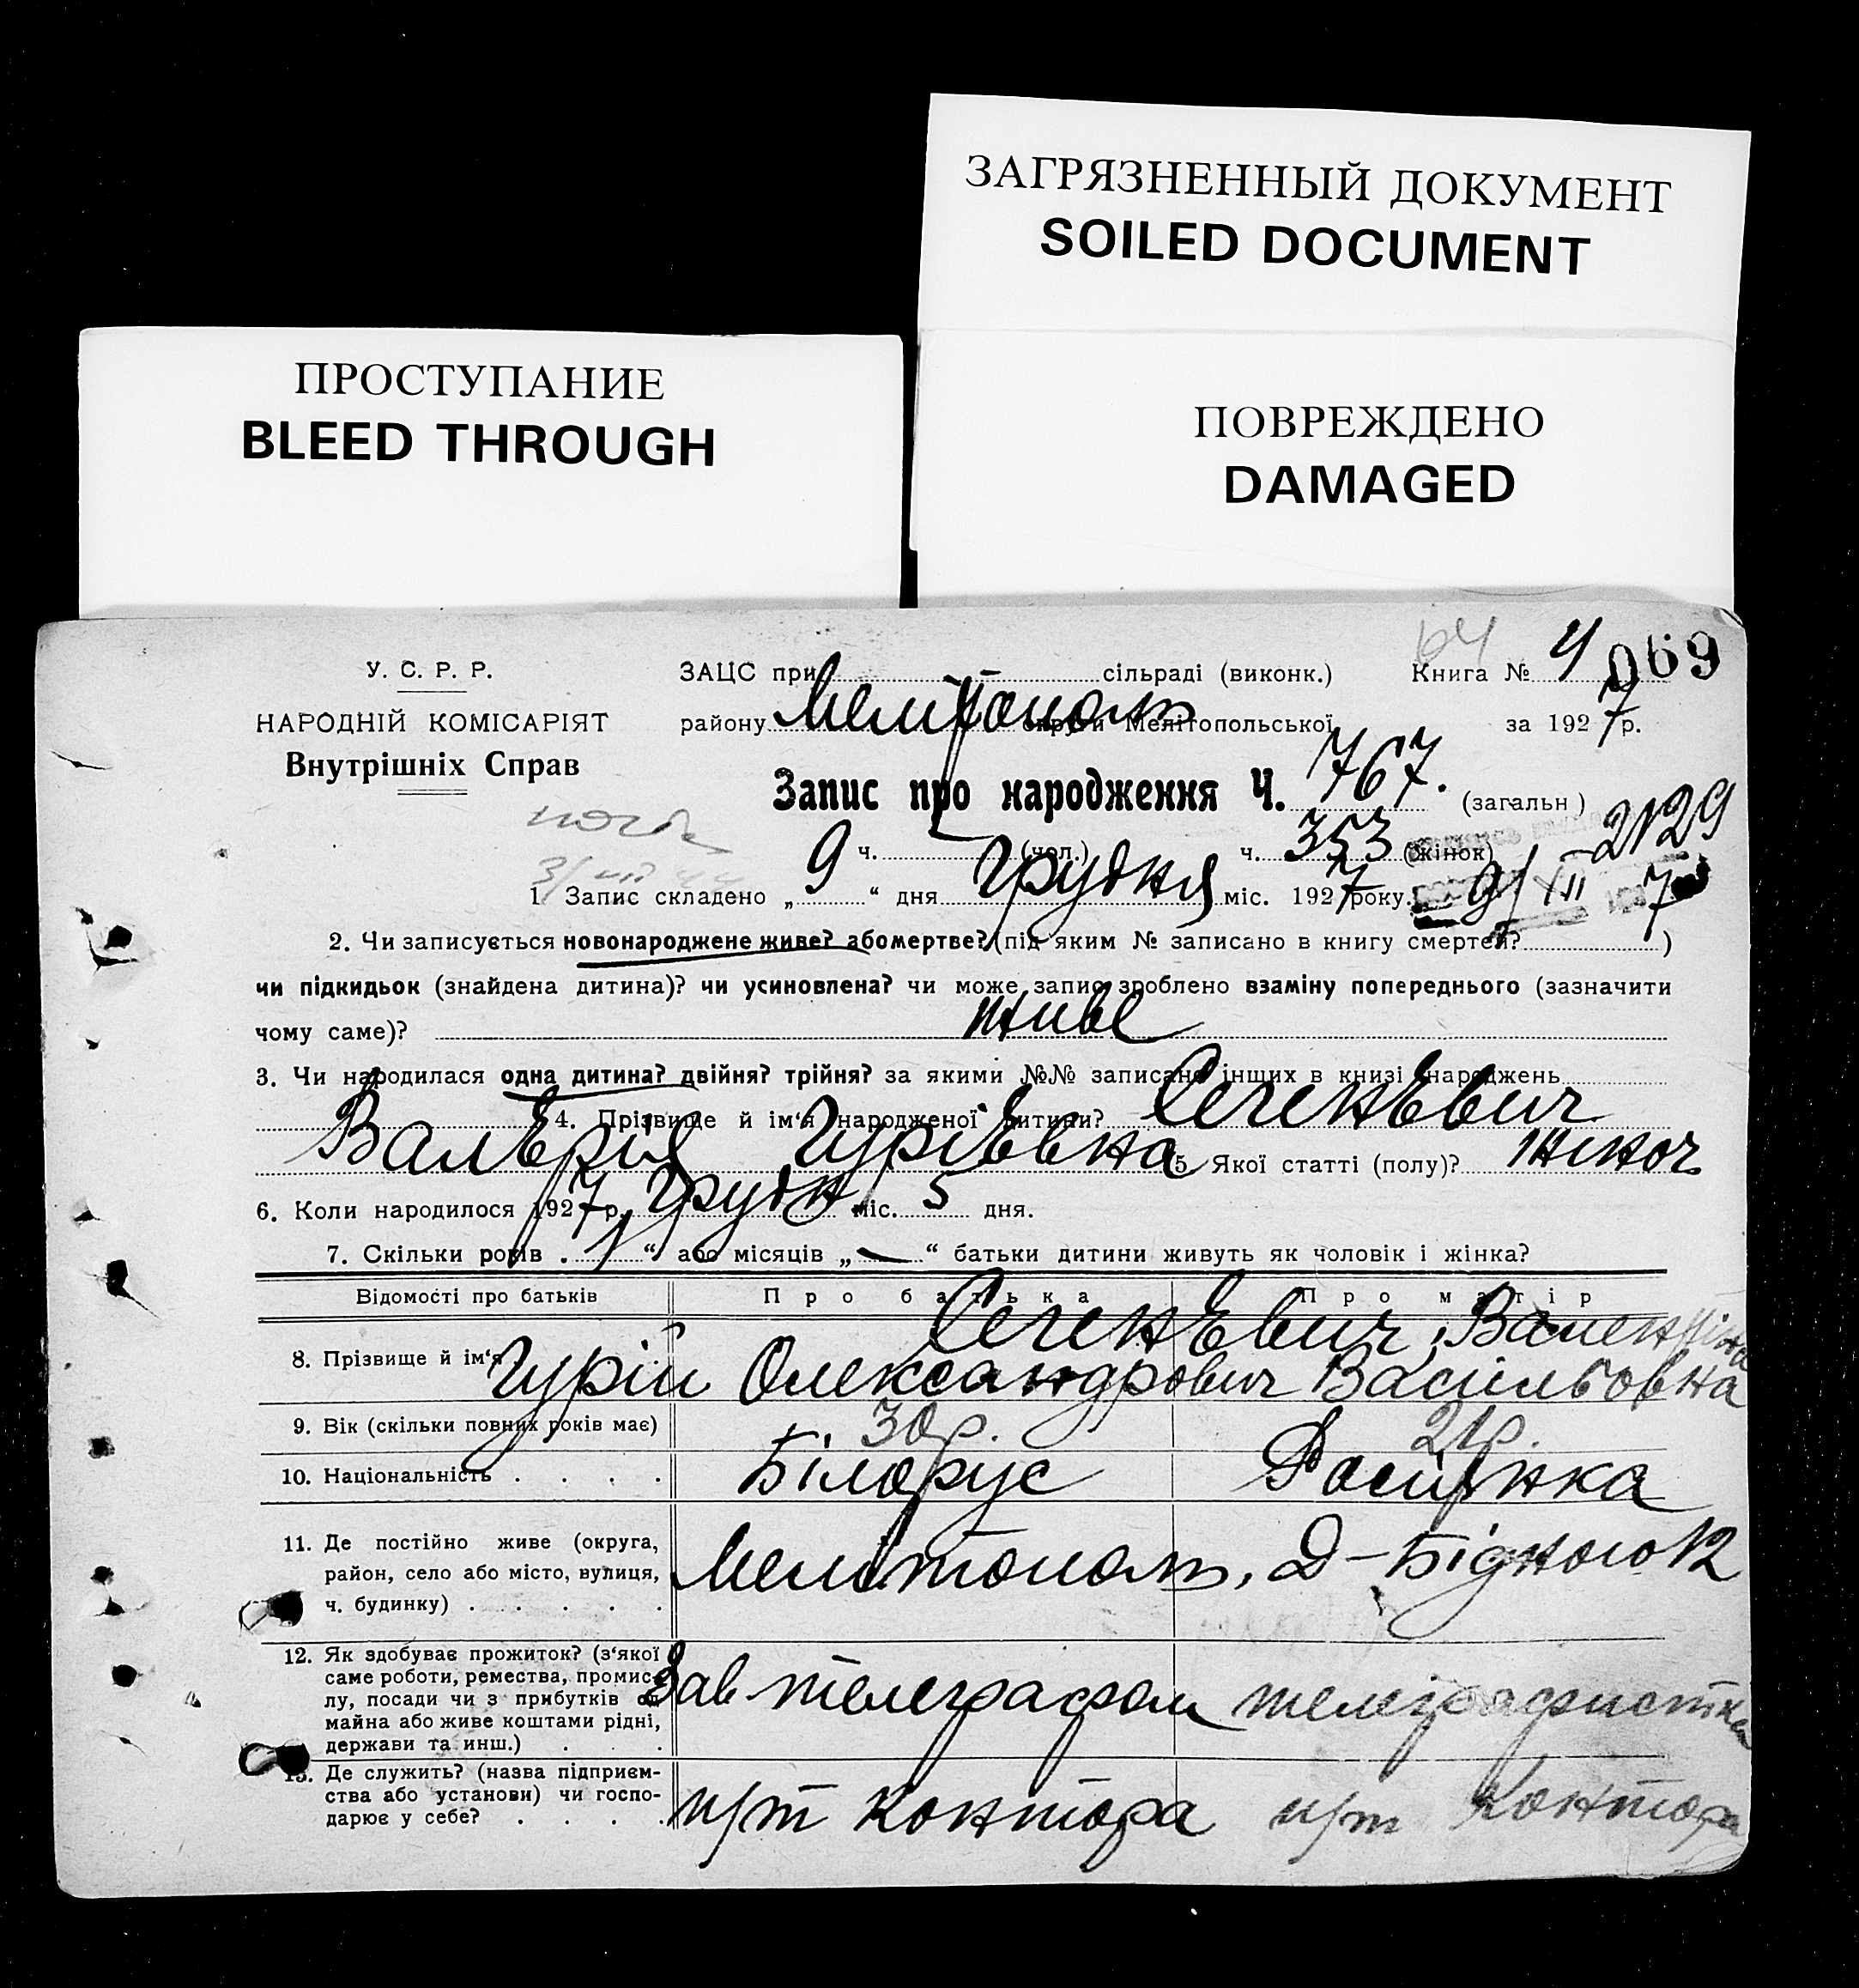 ЗАГРЯЗНЕННЫЙ ДОКУМЕНТ
SOILED DOCUMENT
ПРОСТУПАНИЕ
BLEED THROUGH
ПОВРЕЖДЕНО
DAMAGED
64
У. С. Р. Р.
НАРОДНІЙ КОМІСАРІЯТ
Внутрішніх Справ
ЗАЦС при сільраді (виконк.) Книга № 4 069
району Мелітополь округи Мелітопольської за 1927 р.
Запис про народження Ч. 767. (загальн)
ч. (чол.) ч. 353 (жінок) 2129
1. Запис складено „ 9 “ дня Грудня міс. 1927 року. 9/XII 7
2. Чи записується новонароджене живе? або мертве? (під яким № записано в книгу смертей? )
чи підкидьок (знайдена дитина)? чи усиновлена? чи може запис зроблено взаміну попереднього (зазначити
чому саме)? живе
3. Чи народилася одна дитина? двійня? трійня? за якими №№ записано інших в книзі народжень
4. Прізвище й ім‘я народженої дитини? СеченЕвич
ВалЕрія Гуріївна 5. Якої статті (полу)? жіноч
6. Коли народилося 1927 р. Грудн міс. 5 дня.
7. Скільки років . 1 “ або місяців „ — “ батьки дитини живуть як чоловік і жінка?
Відомості про батьків Про батька Про матір
8. Прізвище й ім‘я СеченЕвич, Валентіна
Гурій Олександрович Васільовна
9. Вік (скільки повних років має) 30 р. 21 р.
10. Національність . . . . Білорус Росіянка
11. Де постійно живе (округа,
район, село або місто, вулиця,
ч. будинку) . . . . . Мелітополь, Д-Бідного 12
12. Як здобуває прожиток? (з‘якої
саме роботи, ремества, промис-
лу, посади чи з прибутків од
майна або живе коштами рідні,
держави та инш.) . . . Зав телеграфом телеграфистка
13. Де служить? (назва підприєм-
ства або установи) чи госпо-
дарює у себе? . . . . п/т контора п/т контора